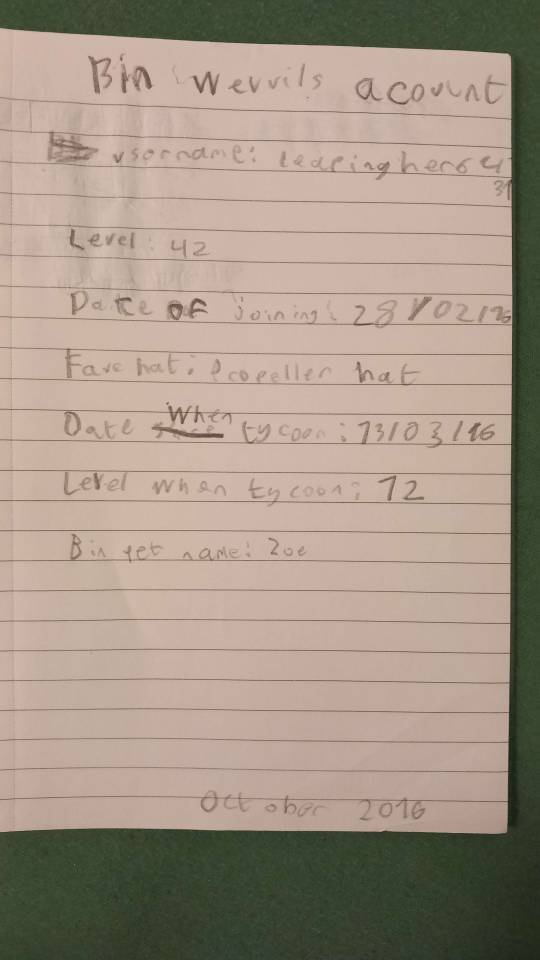 Bin wevvils acount
usorname: leapinghero 41
31
Level: 42
Date OF joining: 28/02/16
Fave hat: Propeller hat
Date When tycoon: 13/03/16
Level when tycoon: 12
Bin pet name: Zoe
October 2016